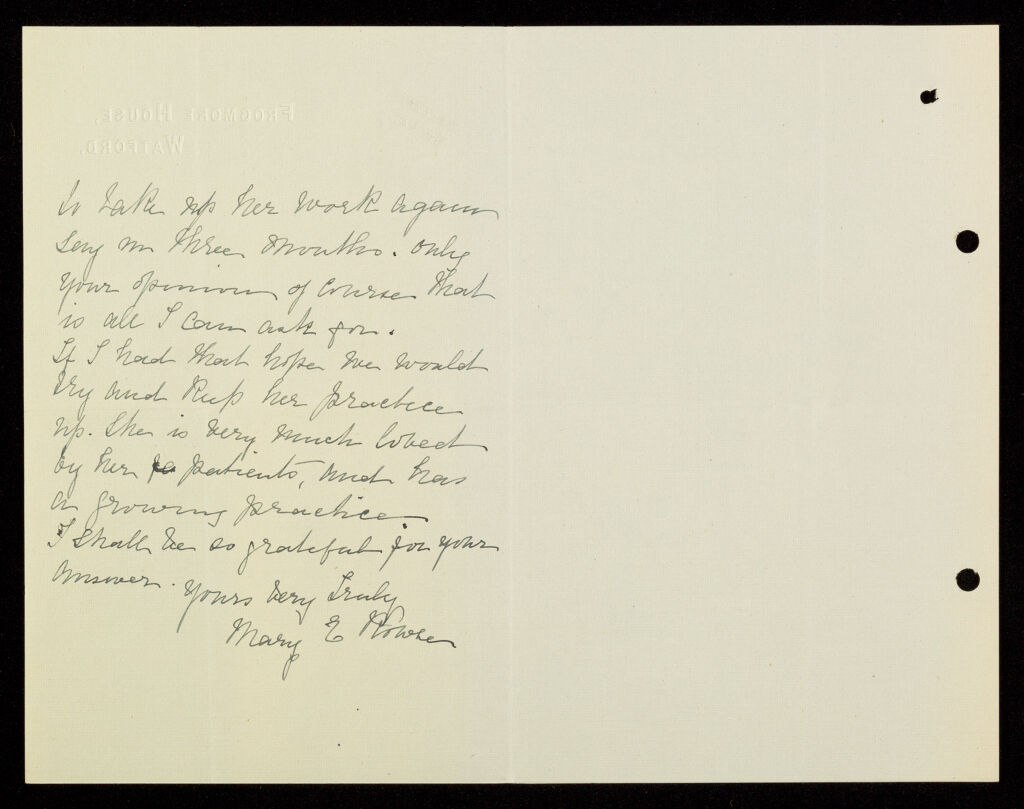 FROGMORE HOUSE,
WATFORD.
to take up her work again
say in three months. only
your opinion of course that
is all I can ask for.
If I had that hope we would
try and keep her practice
up. She is very much loved
by her patients, and has
a growing practice
I shall be so grateful for your
answer. Yours very Truly
Mary E